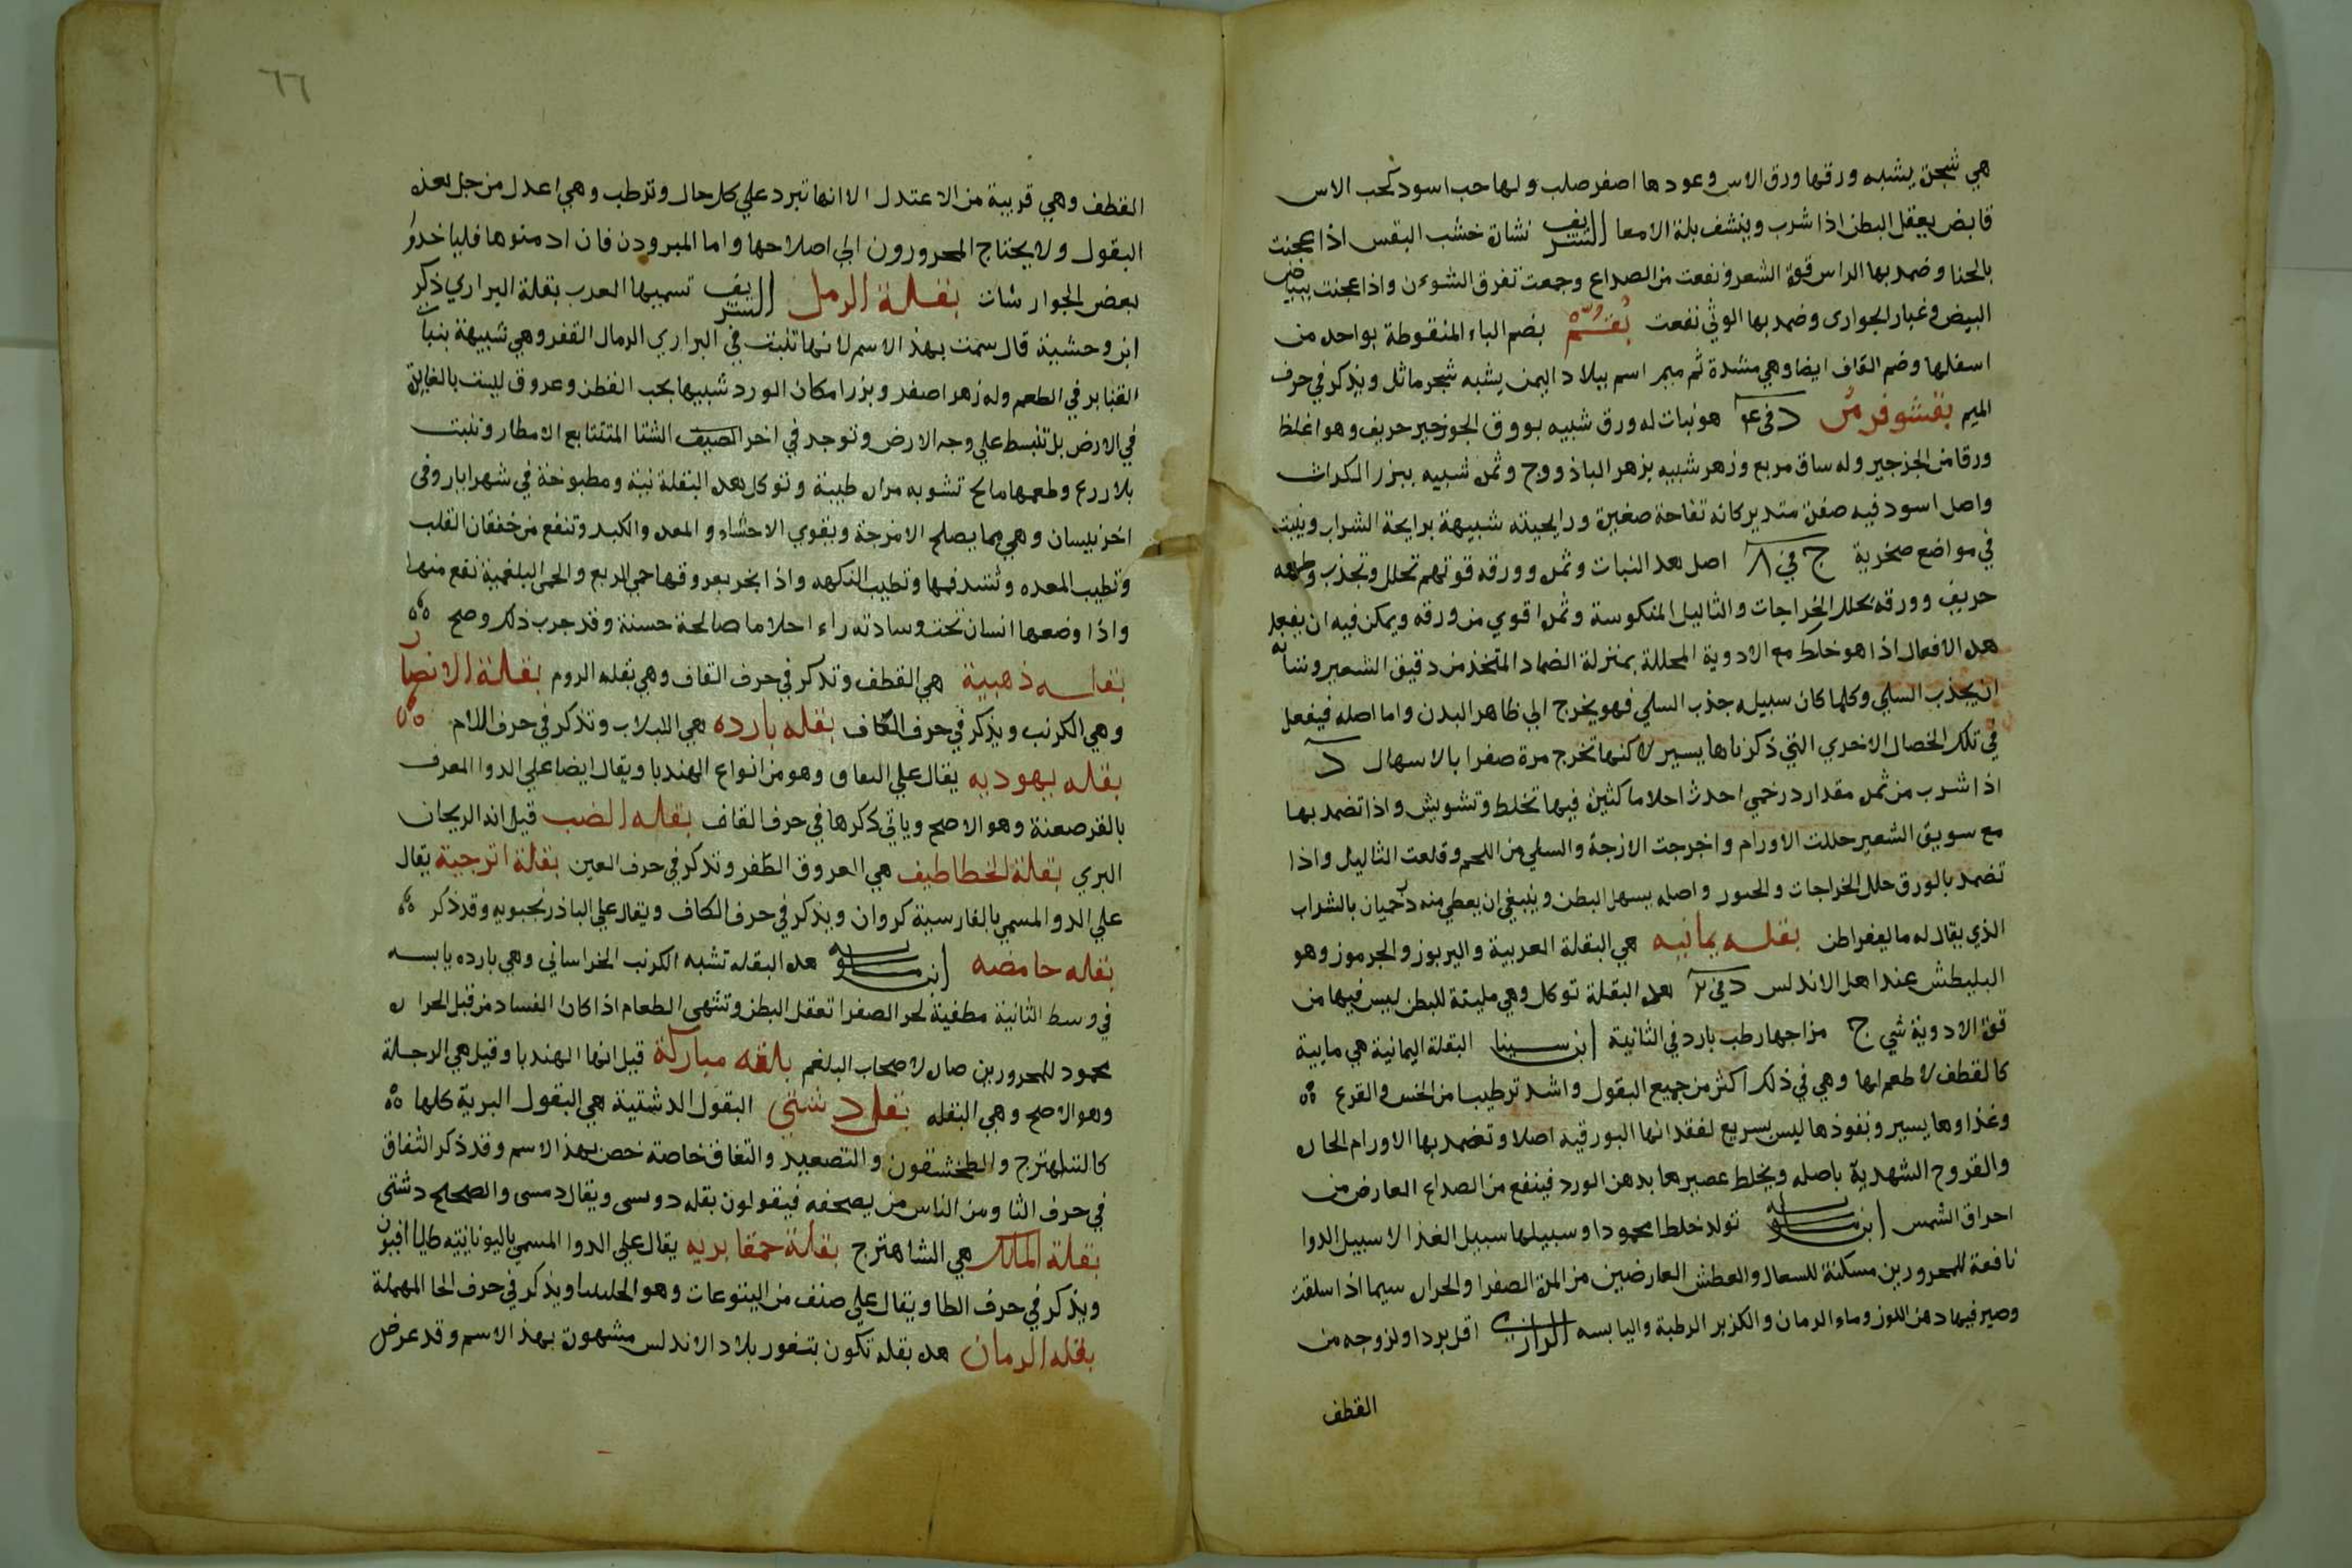 هي شجرة يشبه ورقها ورق الاس وعودها اصفر صلب ولها حب اسود كحب الاس
قابض يعقل البطن اذا شرب وينشف بلة الامعا الشريف نشارة خشب البقس اذا عجنت
بالحنا وضمد بها الراس قوة الشعر ونفعت من الصداع وجمعت تفرق الشوءن واذا عجنت ببياض
البيض وغبار الجوارى وضمد بها الوثي نفعت بقم بضم الباء المنقوطة بواحد من
اسفلها وضم القاف ايضا وهي مشدة ثم ميم اسم ببلاد اليمن يشبه شجر ماثل ويذكر في حرف
الميم بقشوفرمس د في ع هو نبات له ورق شبيه بورق الجرجير حريف وهو اغلظ
ورقا من الجرجير وله ساق مربع وزهر شبيه بزهر الباذروج وثمر شبيه ببزر الكراث
واصل اسود فيه صفرة مستدير كانه تفاحة صغيرة ورايحيته شبيهة برايحة الشراب وينبت
في مواضع صخرية ج في ٨ اصل هذا النبات وثمره وورقه قوتهم تحلل وتجذب وطعمه
حريف وورقه يحلل الخراجات والثاليل المنكوسة وثمره اقوي من ورقه ويمكن فيه ان يفعل
هذه الافعال اذا هو خلط مع الادوية المحللة بمنزلة الضماد المتخذ من دقيق الشعير وشانه
ان يجذب السلي وكلما كان سبيله جذب السلي فهو يخرج الي ظاهر البدن واما اصله فيفعل
في تلك الخصال الاخري التي ذكرناها يسير لاكنها تخرج مرة صفرا بالاسهال د
اذا شرب من ثمره مقدار درخمي احدث احلاما كثيرة فيها تخلط وتشويش واذا تضمد بها
مع سويق الشعير حللت الاورام واخرجت الازجة والسلي من اللحم وقلعت الثاليل واذا
تضمد بالورق حلل الخراجات والجسور واصله يسهل البطن وينبغي ان يعطي منه درخميان بالشراب
الذي يقال له مالقراطن بقله يمانيه هي البقلة العربية واليربوز والجرموز وهو
البليطش عند اهل الاندلس د في ٢ هذه البقلة توكل وهي ملينة للبطن ليس فيها من
قوة الادوية شي ج مزاجها رطب بارد في الثانية ابن سينا البقلة اليمانية هي مايية
كالقطف لا طعم لها وهي في ذلك اكثر من جميع البقول واشد ترطيبا من الخس والقرع
وغذاوها يسير ونفوذها ليس بسريع لفقدانها البورقيه اصلا وتضمد بها الاورام الحاره
والقروح الشهدية باصله ويخلط عصيرها بدهن الورد فينفع من الصداع العارض من
احراق الشمس ابن ماسويه تولد خلطا محمودا وسبيلها سبيل الغذا لا سبيل الدوا
نافعة للمحرورين مسكنة للسعال والعطش العارضين من المرة الصفرا والحرارة سيما اذا سلقت
وصير فيها دهن اللوز وماء الرمان والكزبر الرطبة واليابسه الرازي اقل بردا ولزوجه من
القطف
٦٦
القطف وهي قريبة من الاعتدل الا انها تبرد علي كل حال وترطب وهي اعدل من جل هذه
البقول ولا يحتاج المحرورون الي اصلاحها واما المبرودن فان ادمنوها فلياخذو
بعض الجوارشات بقلة الرمل الشريف تسميها العرب بقلة البراري ذكر
ابن وحشية قال سمت بهذ الاسم لانها تنبت في البراري الرمال القفر وهي شبيهة بنبات
القنابر في الطعم وله زهر اصفر وبزر امكان الورد شبيها بحب القطن وعروق ليست بالغايرة
في الارض بل تنبسط علي وجه الارض وتوجد في اخر الصيف الشتا المتتابع الامطار وتنبت
بلا زرع وطعمها مالح تشوبه مراره طيبة وتوكل هذه البقلة نية ومطبوخة في شهر ايار وفى
اخر نيسان وهي مما يصلح الامزجة ويقوي الاحشاء والمعده والكبد وتنفع من خفقان القلب
وتطيب المعده وتشد فمها وتطيب النكهه واذا بخر بعروقها حمي الربع والحمى البلغمية نفع منها
واذا وضعها انسان تحت وسادته راء احلاما صالحة حسنة وقد جرب ذلك وصح
بقله ذهبية هي القطف وتذكر في حرف القاف وهي بقله الروم بقلة الانصار
وهي الكرنب ويذكر في حرف الكاف بقله بارده هي اللبلاب وتذكر في حرف اللام
بقله يهوديه يقال علي التفاف وهو من انواع الهندبا ويقال ايضا علي الدوا المعرف
بالقرصعنة وهو الاصح وياتي ذكرها في حرف القاف بقله الضب قيل انه الريحان
البري بقلة الخطاطيف هي العروق الصفر وتذكر في حرف العين بقلة اترجية يقال
علي الدوا المسمي بالفارسية كروان ويذكر في حرف الكاف ويقال علي الباذرنجبويه وقد ذكر
بقله حامضه ابن ماسويه هذه البقله تشبه الكرنب الخراساني وهي بارده يابسه
في وسط الثانية مطفية لحر الصفرا تعقل البطن وتشهي الطعام اذا كان الفساد من قبل الحراره
محمود للمحرورين ضاره لاصحاب البلغم بلقه مباركة قيل انها الهندبا وقيل هي الرجلة
وهو الاصح وهي البقله بقله دشتي البقول الدشتية هي البقول البرية كلها
كالشاهترج والطخشقون والتصعيد والتفاف خاصة خص بهذ الاسم وقد ذكر الثفاف
في حرف الثا ومن الناس من يصحفه فيقولون بقله دوسى ويقال دمسى والصحيح دشتى
بقلة الملك هي الشاهترج بقلة حمقا بريه يقال علي الدوا المسمي باليونانيه طاليا افيون
ويذكر في حرف الطا ويقال علي صنف من اليتوعات وهو الحلبثا ويذكر في حرف الحا المهملة
بقله الرمان هذه بقله تكون بثغور بلاد الاندلس مشهورة بهذ الاسم وقد عرض